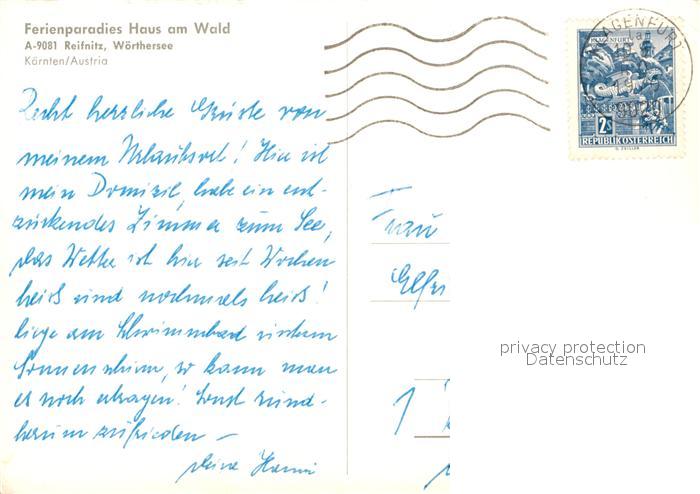 Ferienparadies Haus am Wald
A-9081 Reifnitz, Wörthersee
Kärnten/Austria
KLAGENFURT
9020
2S
REPUBLIK ÖSTERREICH
Recht herzliche Grüße von
meinem Urlaubsort! Hier ist
mein Domizil, habe ein ent-
zückendes Zimmer zum See,
das Wetter ist hier seit Wochen
heiß und nochmals heiß!
liege am Schwimmbad unterm
Sonnenschirm, so kann man
es noch ertragen! Sonst rund-
herum zufrieden –
Deine Hanni
Frau
Elfri
1
privacy protection
Datenschutz